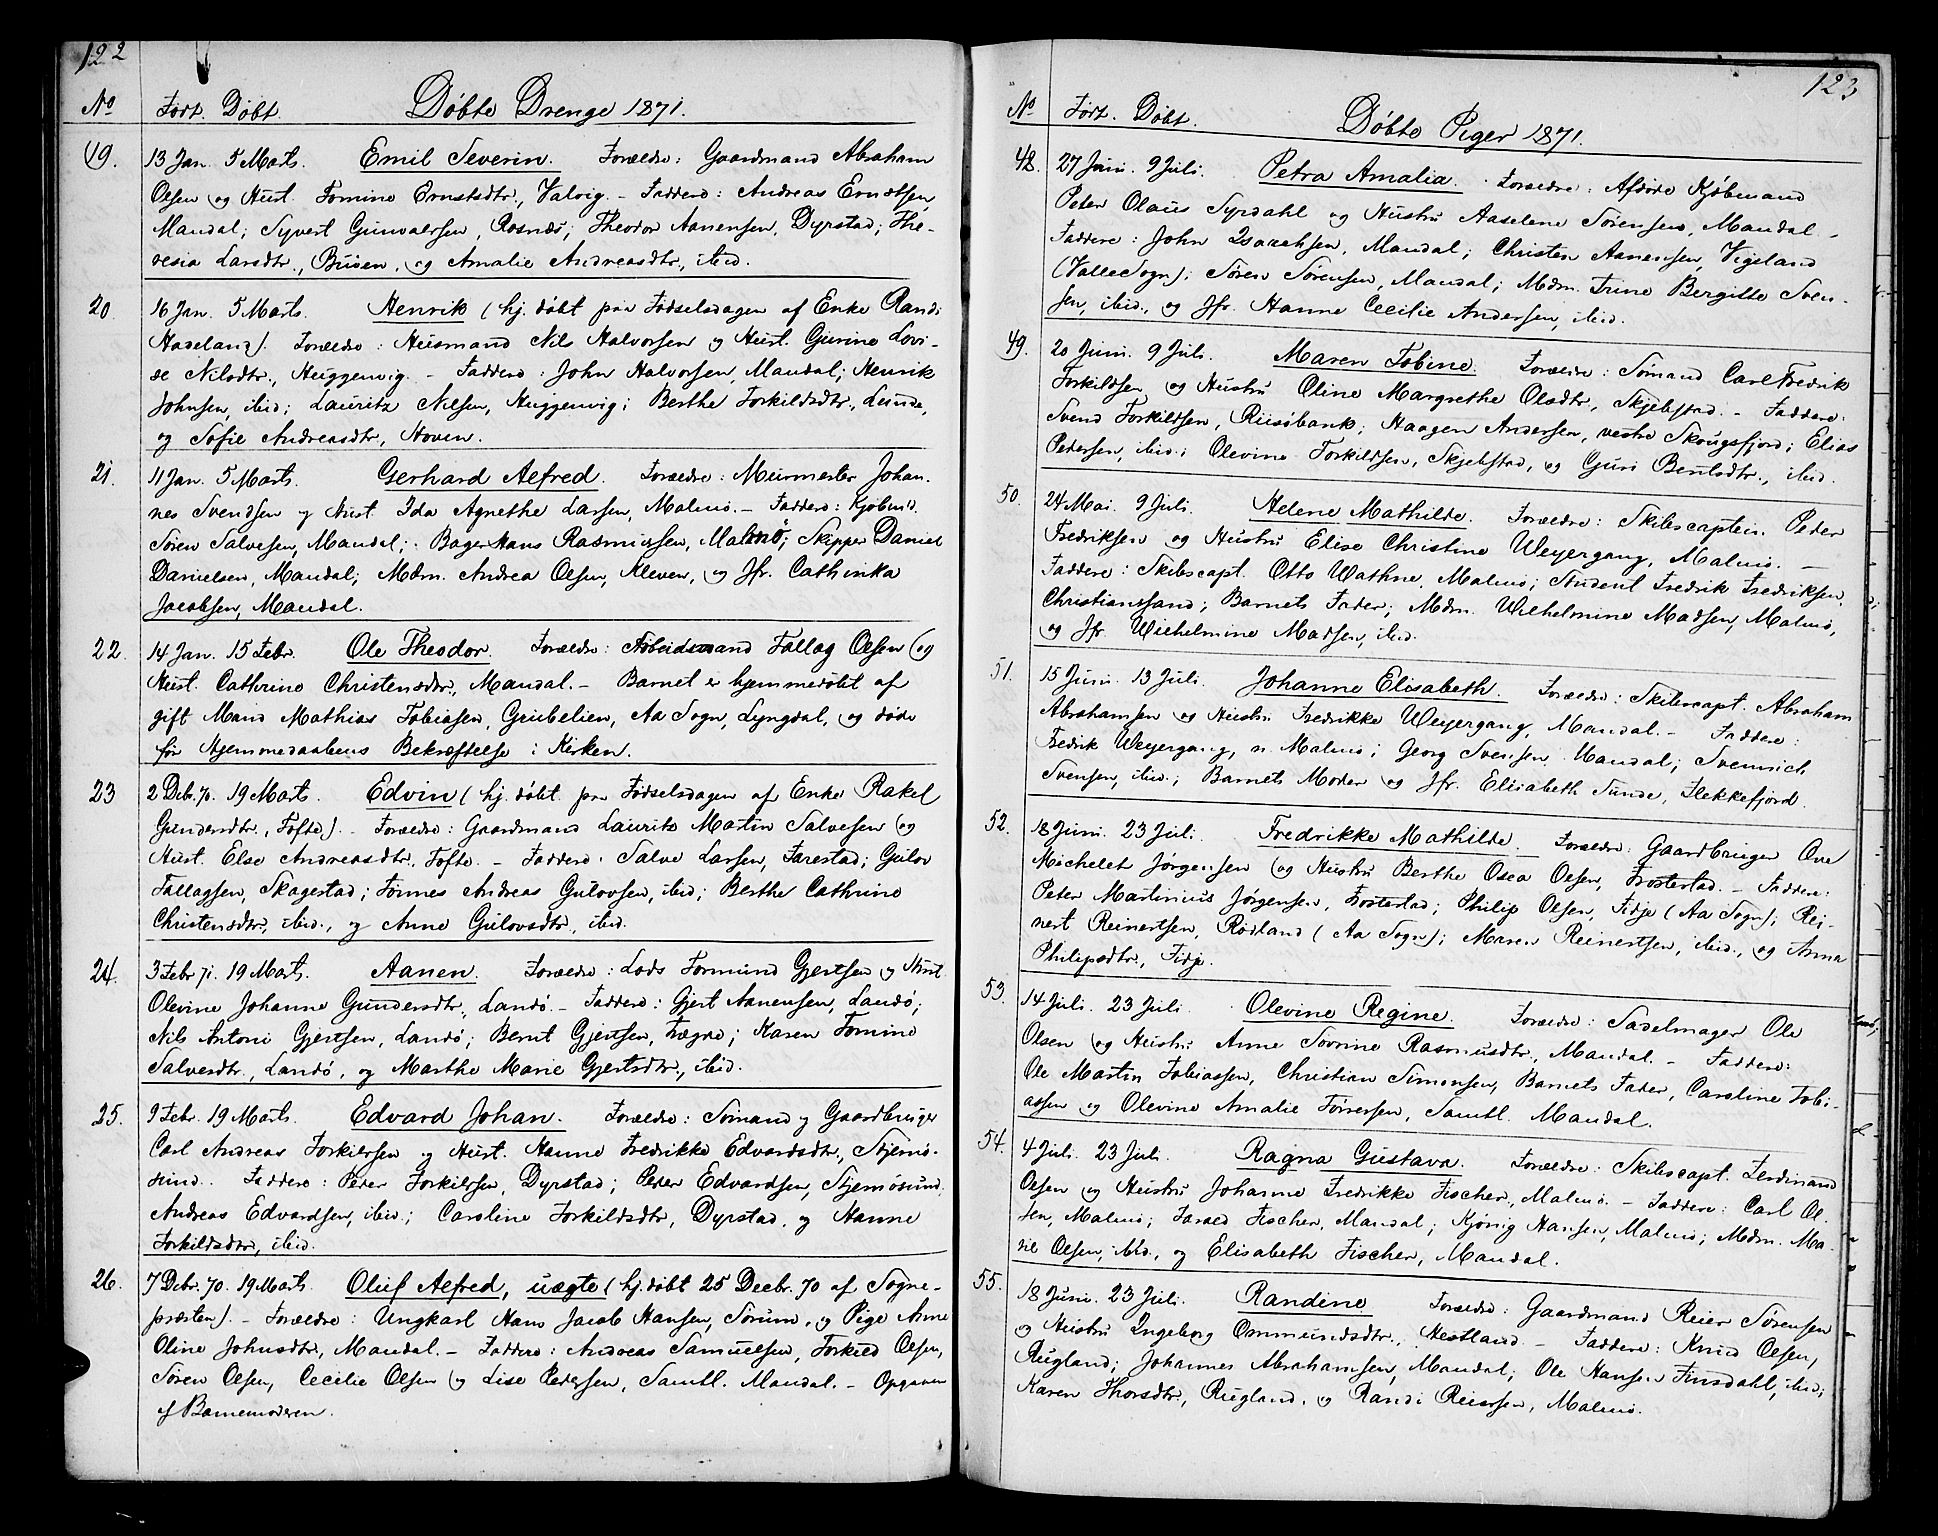 122
No Født. Døbt. Døbte Drenge 1871.
19. 13 Jan. 5 Marts. Emil Severin. Forældre: Gaardmand Abraham
Olsen og Hust. Tomine Ernstsdtr., Valvig. – Faddere: Andreas Ernstsen,
Mandal; Syvert Gunvalsen, Rosnæs; Theodor Aanensen, Dyrstad; The-
resia Larsdtr., Buøen, og Amalie Andreasdtr., ibid.
20. 16 Jan. 5 Marts. Henrik (hj. døbt paa Fødselsdagen af Enke Randi
Haaeland). Forældre: Husmand Nils Halvorsen og Hust. Gurine Lovi-
se Nilsdtr., Huggenvig. – Faddere: John Halvorsen, Mandal; Henrik
Johnsen, ibid; Lauritz Nilsen, Huggenvig; Berthe Torkildsdtr., Lunde,
og Sofie Andreasdtr, Hoven.
21. 11 Jan. 5 Marts. Gerhard Alfred. Forældre: Murmester Johan-
nes Svendsen og Hust. Ida Agnethe Larsen, Malmø. – Faddere: Kjøbmd.
Søren Salvesen, Mandal; Bager Hans Rasmussen, Malmø; Skipper Daniel
Danielsen, Mandal; Mdm. Andrea Olsen, Kleven, og Jfr. Cathinka
Jacobsen, Mandal.
22. 14 Jan. 15 Febr. Ole Theodor. Forældre: Arbeidsmand Tallag Olsen og
Hust. Cathrine Christensdtr., Mandal. – Barnet er hjemmedøbt af
gift Mand Mathias Tobiasen, Grubelien, Aa Sogn, Lyngdal, og døde
før Hjemmedaabens Bekræftelse i Kirken.
23 2 Dcbr. 70. 19 Marts. Edvin (hj. døbt paa Fødselsdagen af Enke Rakel
Gundersdtr., Tofte). – Forældre: Gaardmand Laurits Martin Salvesen og
Hust. Else Andreasdtr. Tofte. – Faddere: Salve Larsen, Farestad; Gulov
Tallagsen, Skagestad; Tønnes Andreas Gulovsen, ibid; Berthe Cathrine
Christensdtr, ibid., og Anne Gulovsdtr., ibid.
24. 3 Febr 71. 19 Marts. Aanen. Forældre: Lods Tormund Gjertsen og Hust.
Olevine Johanne Gundersdtr., Landø. – Faddere: Gjert Aanensen, Landø;
Nils Antoni Gjertsen, Landø; Bernt Gjertsen, Fægne; Karen Tomine
Salvesdtr., Landø, og Marthe Marie Gjertsdtr., ibid.
25. 9 Febr. 19 Marts. Edvard Johan. Forældre: Sømand og Gaardbruger
Carl Andreas Torkilssen og Hust. Hanne Fredrikke Edvardsdtr., Stjernø-
sund. Faddere: Peder Torkilssen, Dyrstad; Peder Edvardsen, Stjernøsund;
Andreas Edvardsen, ibid.; Caroline Torkildsdtr, Dyrstad, og Hanne
Torkildsdtr, ibid.
26. 7 Dcbr. 70. 19 Marts. Oluf Alfred, uægte (hj. døbt 25 Decbr. 70 af Sogne-
præsten). – Forældre: Ungkarl Hans Jacob Hansen, Sørum, og Pige Anne
Oline Johnsdtr., Mandal. – Faddere: Andreas Samuelsen, Torkild Olsen,
Søren Olsen, Cecilie Olsen og Lise Pedersen, Samtl. Mandal. – Opgaven
af Barnemoderen.
123
No Født. Døbt. Døbte Piger 1871.
48. 27 Juni. 9 Juli. Petra Amalia. Forældre: Afdøde Kjøbmand
Peter Olaus Syrdahl og Hustru Aaselene Sørensen, Mandal. –
Faddere: John Isaachsen, Mandal; Christen Aanensen, Vigeland
(Valle Sogn); Søren Sørensen, Mandal; Mdm. Trine Bergitte Sven-
sen, ibid., og Jfr. Hanne Cecilie Andersen, ibid.
49. 20 Juni. 9 Juli. Maren Tobine. Forældre: Sømand Carl Fredrik
Torkildsen, og Hustru Oline Margrethe Olsdtr., Skjebstad. – Faddere:
Svend Torkildsen, Riisøbank; Haagen Andersen, vestre Skougsfjord; Elias
Pedersen, ibid.; Olevine Torkildsen, Skjebstad, og Guri Bentsdtr., ibid.
50. 24 Mai. 9 Juli. Helene Mathilde. Forældre: Skibscaptein Peder
Fredriksen og Hustru Elise Christine Weyergang, Malmø. –
Faddere: Skibscapt. Otto Wathne, Malmø; Student Fredrik Fredriksen,
Christianssand; Barnets Fader; Mdm. Wilhelmine Madsen, Malmø,
og Jfr. Wilhelmine Madsen, ibid.
51. 15 Juni. 13 Juli. Johanne Elisabeth. Forældre: Skibscapt. Abraham
Abrahamsen og Hustru Fredrikke Weyergang, Mandal. – Faddere:
Fredrik Weyergang, n. Malmø; Georg Svensen, Mandal; Svennich
Svensen, ibid.; Barnets Moder og Jfr. Elisabeth Sunde, Flekkefjord.
52. 18 Juni. 23 Juli. Fredrikke Mathilde. Forældre: Gaardbruger Ove
Michelet Jørgensen og Hustru Berthe Osea Olsen, Frosterstad. – Faddere:
Peter Martinius Jørgensen, Frosterstad; Philip Olsen, Fidje (Aa Sogn); Rei-
nert Reinertsen, Rødland (Aa Sogn); Maren Reinertsen, ibid., og Anna
Philipsdtr., Fidje.
53. 14 Juli. 23 Juli. Olevine Regine. Forældre: Sadelmager Ole
Olsen og Hustru Anne Sovrine Rasmusdtr., Mandal. – Faddere:
Ole Martin Tobiassen, Christian Simonsen, Barnets Fader, Caroline Tobi-
assen og Olevine Amalie Tørresen, Samtl. Mandal.
54. 4 Juli. 23 Juli. Ragna Gustava. Forældre: Skibscapt. Ferdinand
Olsen og Hustru Johanne Fredrikke Fischer, Malmø. – Faddere: Carl Ol-
sen, Malmø; Fischer, Mandal; Hansen, Malmø; Mdm. Ma-
rie Olsen, ibid., og Elisabeth Fischer, Mandal.
55. 18 Juni. 23 Juli. Randine Forældre: Gaardmand Reier Sørensen
og Hustru Ingeborg Ommundsdtr., Hestland. – Faddere: Knud Olsen,
Rugland; Johannes Abrahamsen, Mandal; Ole Hansen Finsdahl, ibid;
Karen Thorsdtr, Rugland, og Randi Reiersen, Malmø.